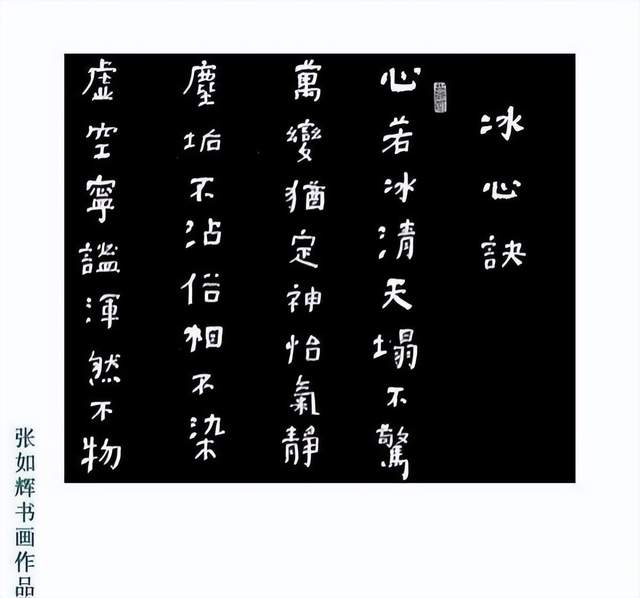 冰心訣
心若冰清天塌不驚
萬變猶定神怡氣靜
塵垢不沾俗相不染
虛空寧謐渾然不物
张如辉书画作品